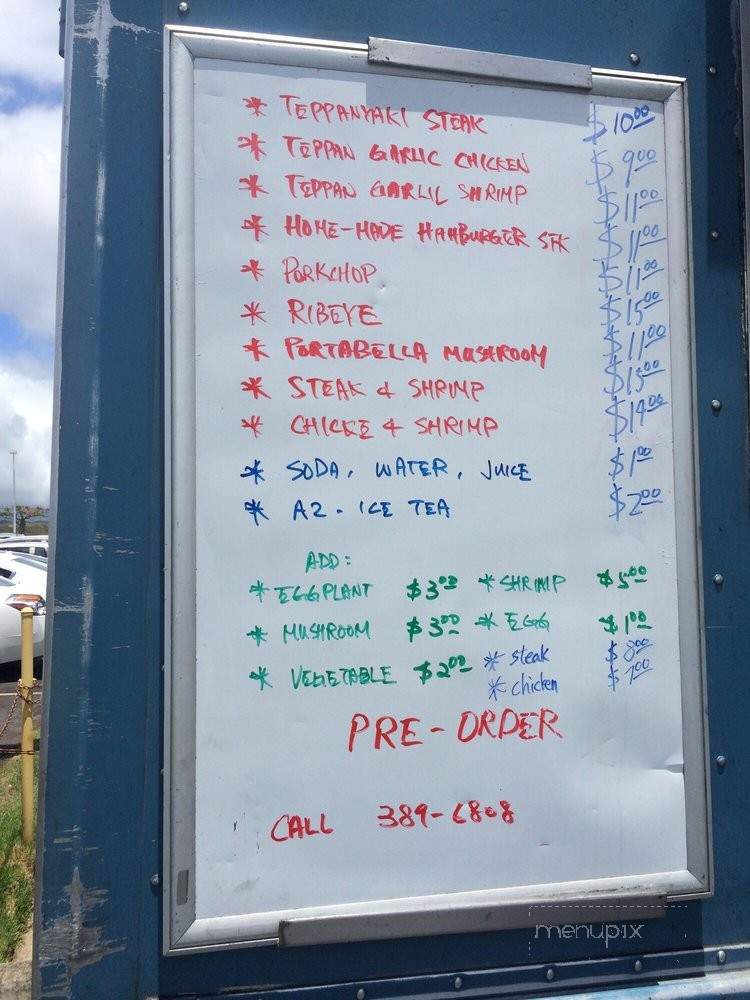 * TEPPANYAKI STEAK $10.00
* TEPPAN GARLIC CHICKEN $9.00
* TEPPAN GARLIC SHRIMP $11.00
* HOME-MADE HAMBURGER STK $11.00
* PORKCHOP $11.00
* RIBEYE $15.00
* PORTABELLA MUSHROOM $11.00
* STEAK & SHRIMP $15.00
* CHICKE & SHRIMP $14.00
* SODA, WATER, JUICE $1.00
* AZ. ICE TEA $2.00
ADD:
* EGGPLANT $3.00 * SHRIMP $5.00
* MUSHROOM $3.00 * EGG $1.00
* VEGETABLE $2.00 * steak $8.00
* chicken $7.00
PRE-ORDER
CALL 389-6808
menupix